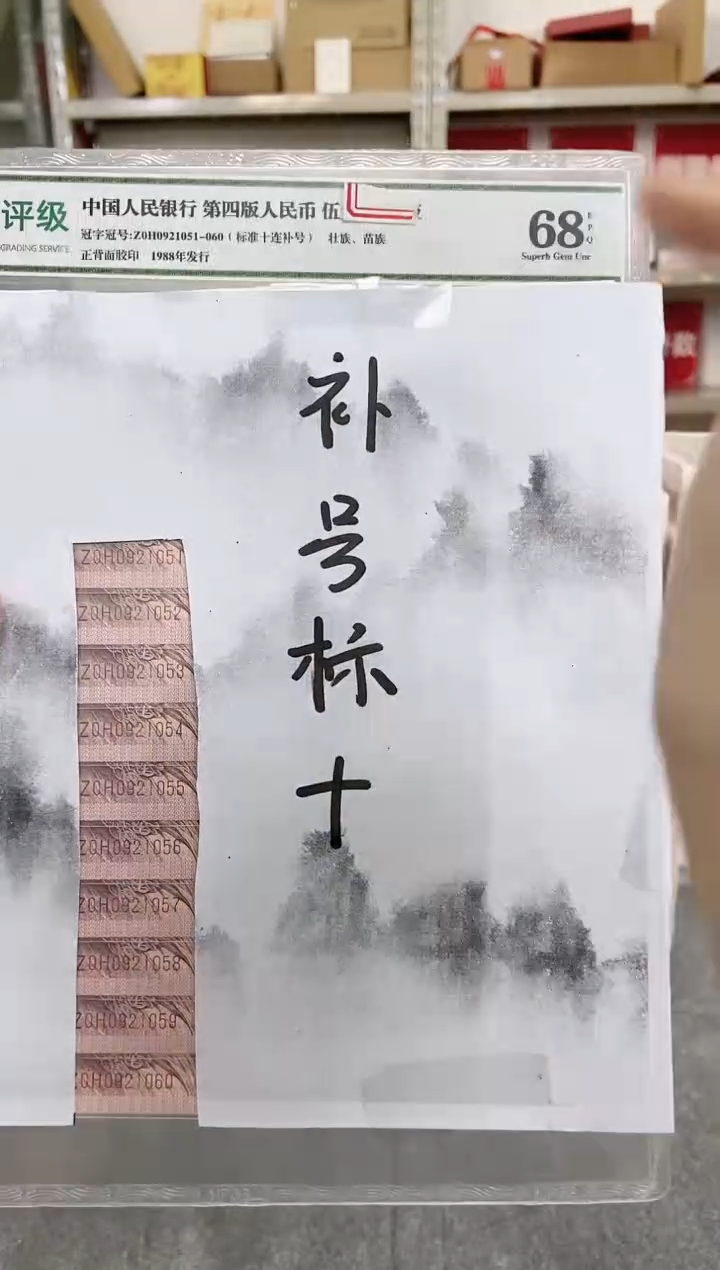 评级
GRADING SERVICE
中国人民银行 第四版人民币 伍
冠字冠号:ZQH0921051-060(标准十连补号) 壮族、苗族
正背面胶印 1988年发行
68
EPQ
Superb Gem Unc
补
号
标
十
ZQH0921051
ZQH0921052
ZQH0921053
ZQH0921054
ZQH0921055
ZQH0921056
ZQH0921057
ZQH0921058
ZQH0921059
ZQH0921060
数